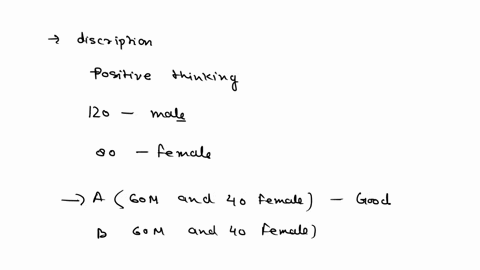 → discription
Positive thinking
120 – male
80 – female
→ A (60M and 40 female) – Good
B 60M and 40 female)